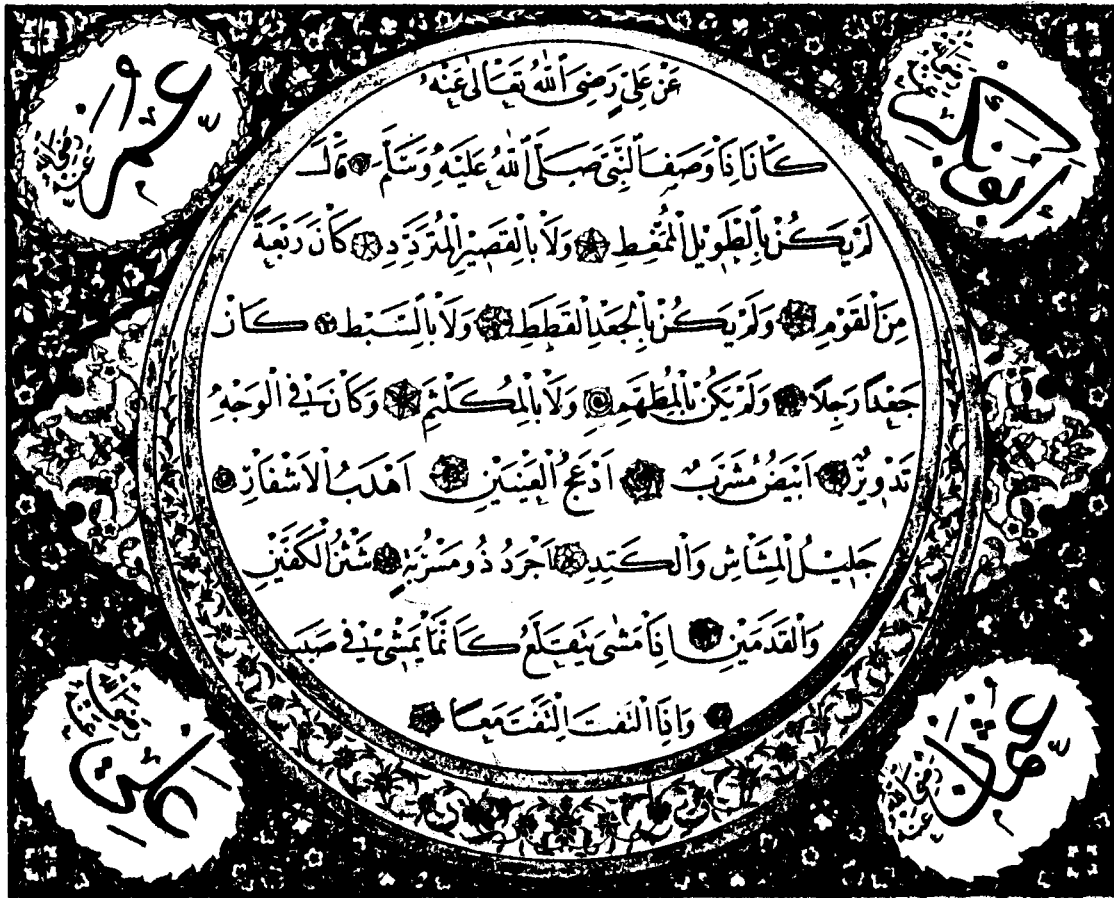 عَنْ عَلِيٍّ رَضِيَ اللّٰهُ تَعَالٰى عَنْهُ
كَانَ اِذَا وَصَفَ النَّبِيَّ صَلَّى اللّٰهُ عَلَيْهِ وَسَلَّمَ قَالَ
لَمْ يَكُنْ بِالطَّوِيْلِ الْمُمَّغِطِ وَلَا بِالْقَصِيْرِ الْمُتَرَدِّدِ كَانَ رَبْعَةً
مِنَ الْقَوْمِ وَلَمْ يَكُنْ بِالْجَعْدِ الْقَطَطِ وَلَا بِالسَّبِطِ كَانَ
جَعْدًا رَجِلًا وَلَمْ يَكُنْ بِالْمُطَهَّمِ وَلَا بِالْمُكَلْثَمِ وَكَانَ فِي الْوَجْهِ
تَدْوِيْرٌ اَبْيَضُ مُشْرَبٌ اَدْعَجُ الْعَيْنَيْنِ اَهْدَبُ الْاَشْفَارِ
جَلِيْلُ الْمُشَاشِ وَالْكَتَدِ اَجْرَدُ ذُو مَسْرُبَةٍ شَثْنُ الْكَفَّيْنِ
وَالْقَدَمَيْنِ اِذَا مَشٰى يَتَقَلَّعُ كَاَنَّمَا يَمْشِيْ فِي صَبَبٍ
وَاِذَا الْتَفَتَ اِلْتَفَتَ مَعًا
اَبُو بَكْرٍ رَضِيَ اللّٰهُ تَعَالٰى عَنْهُ
عُمَرُ رَضِيَ اللّٰهُ عَنْهُ
عُثْمَانُ رَضِيَ اللّٰهُ عَنْهُ
عَلِيٌّ رَضِيَ اللّٰهُ تَعَالٰى عَنْهُ